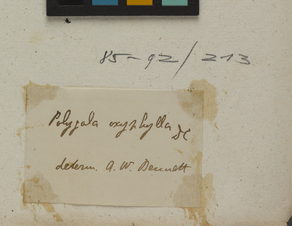 85-92/213
Polygala oxyphylla DC
determ. A. W. Bennett